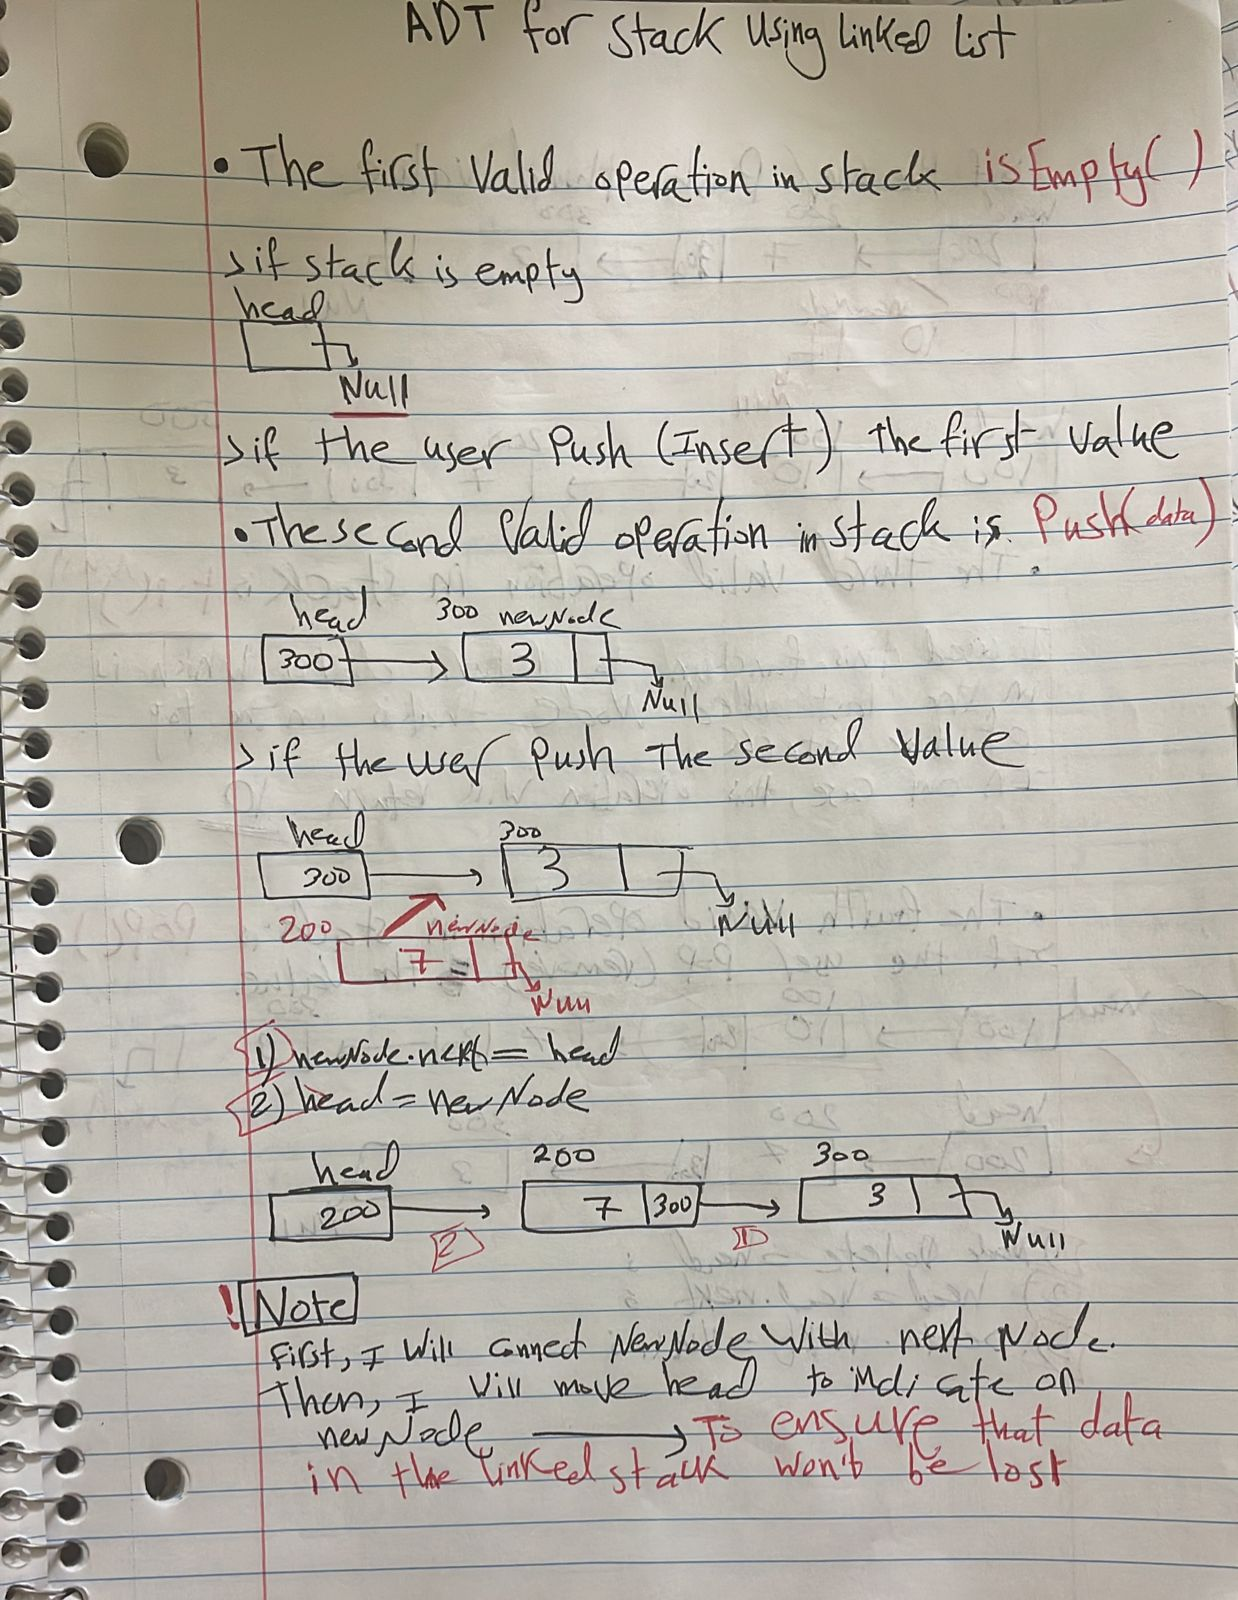 ADT for Stack Using linked list
• The first Valid operation in stack isEmpty( )
>if stack is empty
head
Null
>if the user Push (Insert) the first value
• The second Valid operation in stack is. Push(data)
head 300 newNode
300 3
Null
>if the user Push The second Value
head 300
300 3
Null
200 newNode
7
Null
1) newNode.next = head
2) head = newNode
head 200 300
200 7 300 3
2 1 Null
! Note
First, I Will connect NewNode With next Node.
Then, I Will move head to indicate on
newNode → To ensure that data
in the linked stack won't be lost